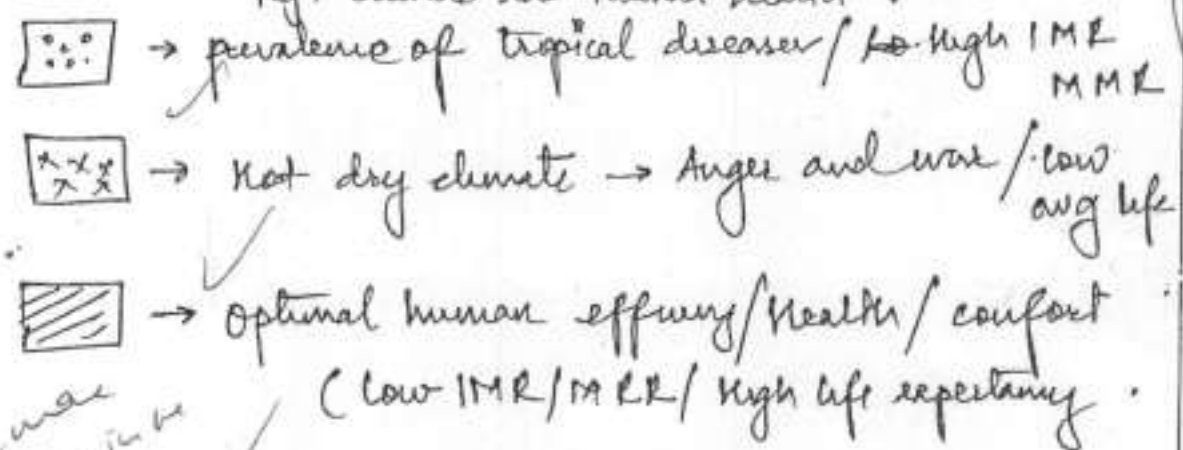 → prevalence of tropical diseases / High IMR
MMR
→ Hot dry climate → Anger and war / low
avg life
→ Optimal human efficiency / Health / comfort
( low IMR / MRR / High life expectancy .